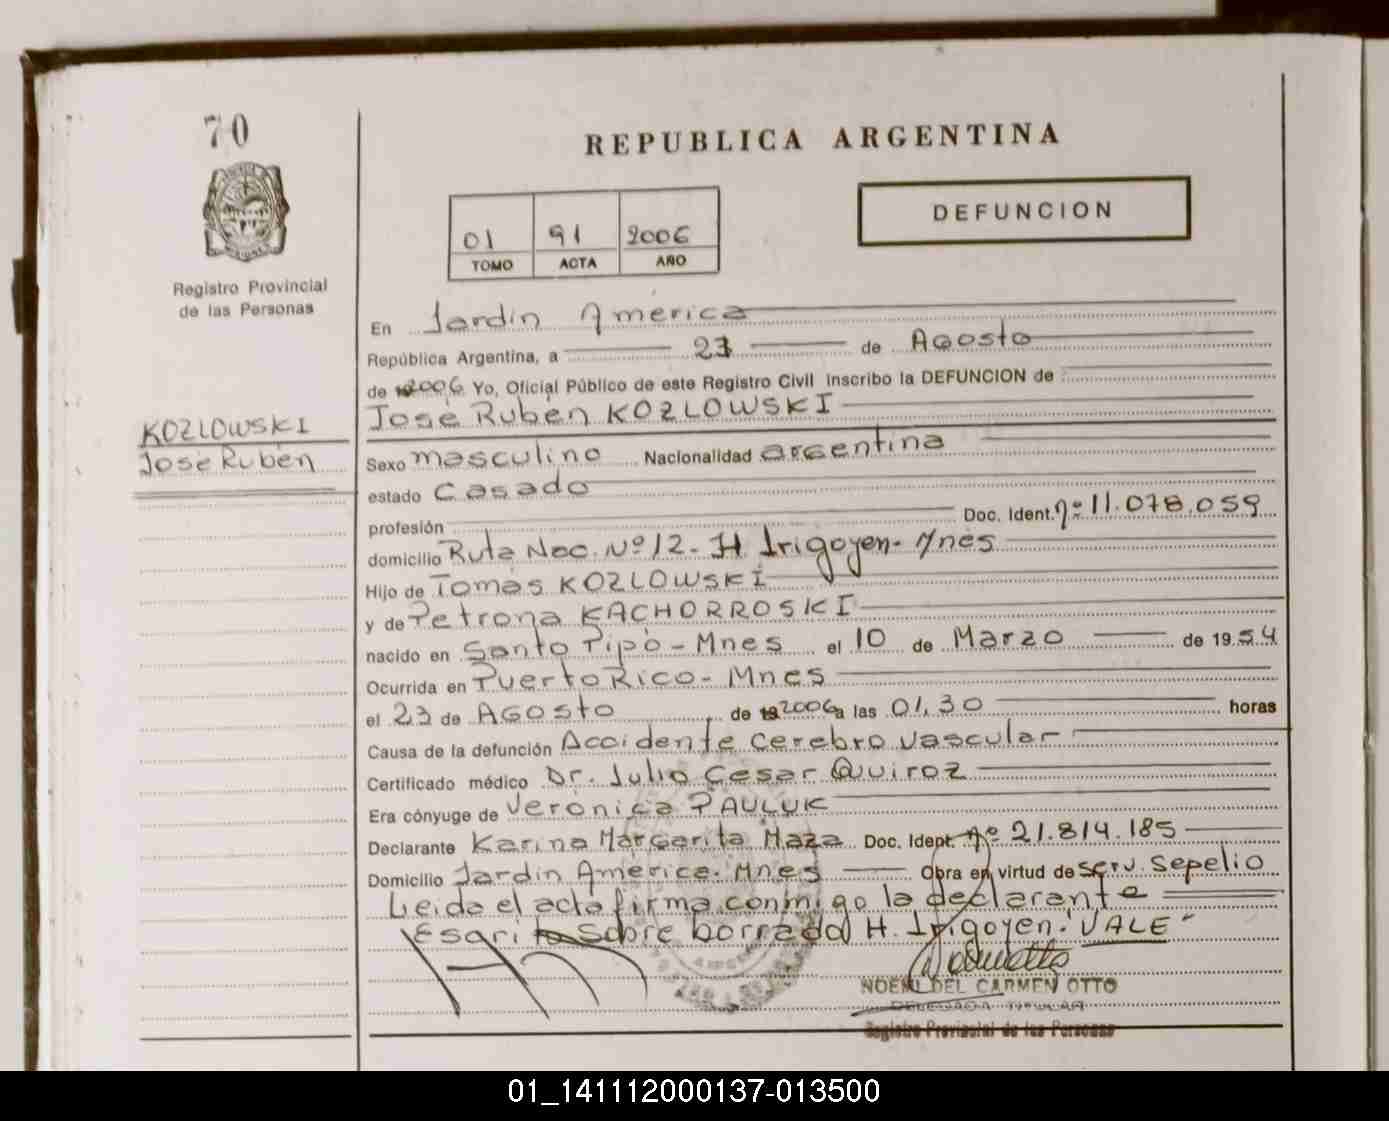 70
REPUBLICA ARGENTINA
DEFUNCION
01 91 2006
TOMO ACTA AÑO
Registro Provincial
de las Personas
En Jardin America
República Argentina, a 23 de Agosto
de 2006 Yo, Oficial Público de este Registro Civil inscribo la DEFUNCION de
José Rubén KOZLOWSKI
KOZLOWSKI
José Rubén
Sexo masculino Nacionalidad argentina
estado casado
profesión Doc. Ident. nº 11.078.059
domicilio Ruta Nac. Nº 12. H Irigoyen - Mnes
Hijo de Tomás KOZLOWSKI
y de Petrona KACHORROSKI
nacido en Santo Pipó - Mnes el 10 de Marzo de 1954
Ocurrida en Puerto Rico - Mnes
el 23 de AGosto de 2006 a las 01,30 horas
Causa de la defunción Accidente cerebro vascular
Certificado médico Dr. Julio Cesar Quiroz
Era cónyuge de Verónica PAULUK
Declarante Karina Margarita Maza Doc. Ident. nº 21.814.185
Domicilio Jardin America. Mnes Obra en virtud de serv. sepelio
Leida el acta firma conmigo la declarante
sobre borrado H. Irigoyen. VALE
NOEMI DEL CARMEN OTTO
DELEGADA TITULAR
Registro Provincial de las Personas
01_141112000137-013500